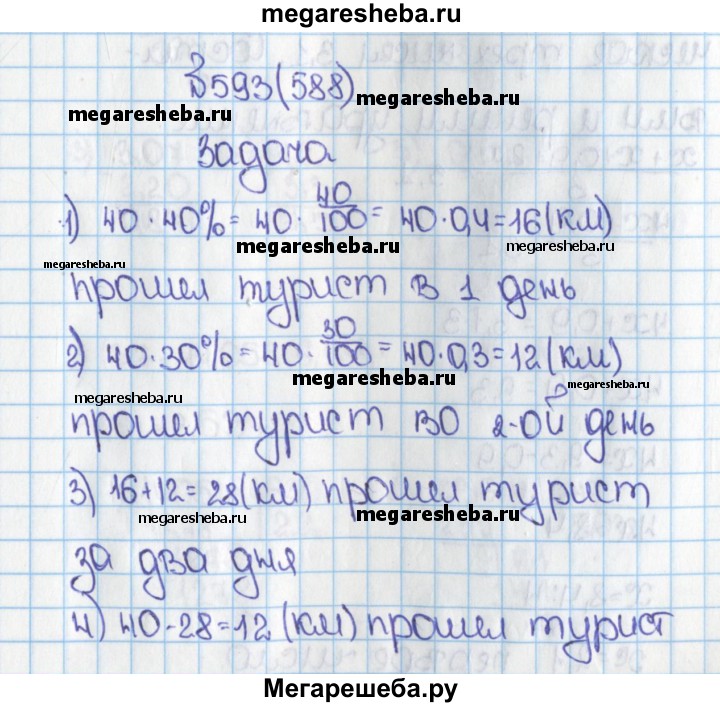 megaresheba.ru
№593(588)
megaresheba.ru
megaresheba.ru
Задача
1) 40·40%=40·40/100=40·0,4=16(км)
megaresheba.ru
megaresheba.ru
megaresheba.ru
прошел турист в 1 день
2) 40·30%=40·30/100=40·0,3=12(км)
megaresheba.ru
megaresheba.ru
megaresheba.ru
прошел турист во 2-ой день
3) 16+12=28(км) прошел турист
megaresheba.ru
megaresheba.ru
за два дня
4) 40-28=12(км) прошел турист
Мегарешеба.ру